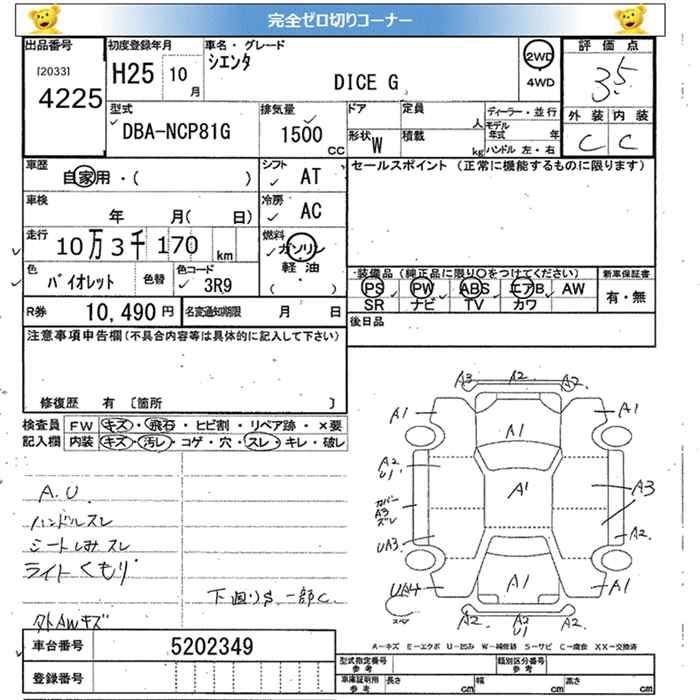 完全ゼロ切りコーナー
出品番号
[2033]
4225
初度登録年月
H25 10月
車名・グレード
シエンタ
DICE G
2WD
4WD
評価点
3.5
外装 内装
C C
型式
DBA-NCP81G
排気量
1500 CC
ドア 定員 人
形状 W 積載 kg
ディーラー・並行
モデル年式 年
ハンドル 左・右
車歴
自家用・( )
シフト AT
車検
年 月( 日)
冷房 AC
走行
10万3千170 km
燃料 ガソリン
軽油
( )
色 バイオレット 色替
色コード 3R9
R券 10,490円
名変通知期限 月 日
セールスポイント (正常に機能するものに限ります)
装備品 (純正品に限り○をつけてください)
新車保証書
有・無
PS PW ABS エアB AW
SR ナビ TV カワ
後日品
注意事項申告欄(不具合内容等は具体的に記入して下さい)
修復歴 有 [箇所 ]
検査員 FW キズ・飛石・ヒビ割・リペア跡・×要
記入欄 内装 キズ・汚レ・コゲ・穴・スレ・キレ・破レ
A.U.
ハンドルスレ
シートしみ スレ
ライトくもり
下廻りS 一部C
社外AWキズ
車台番号 5202349
登録番号
A3 A2 A2
A1 A1 A1
A2 U1
A1
カバー A3 ズレ
A3
UA3
A2
UA4
A1
A1
A2 A2 U1 A2
A-キズ E-エクボ U-凹み W-補修跡 S-サビ C-腐食 XX-交換済
型式指定番号 参考
類別区分番号 参考
車庫証明用 参考 長さ cm 幅 cm 高さ cm